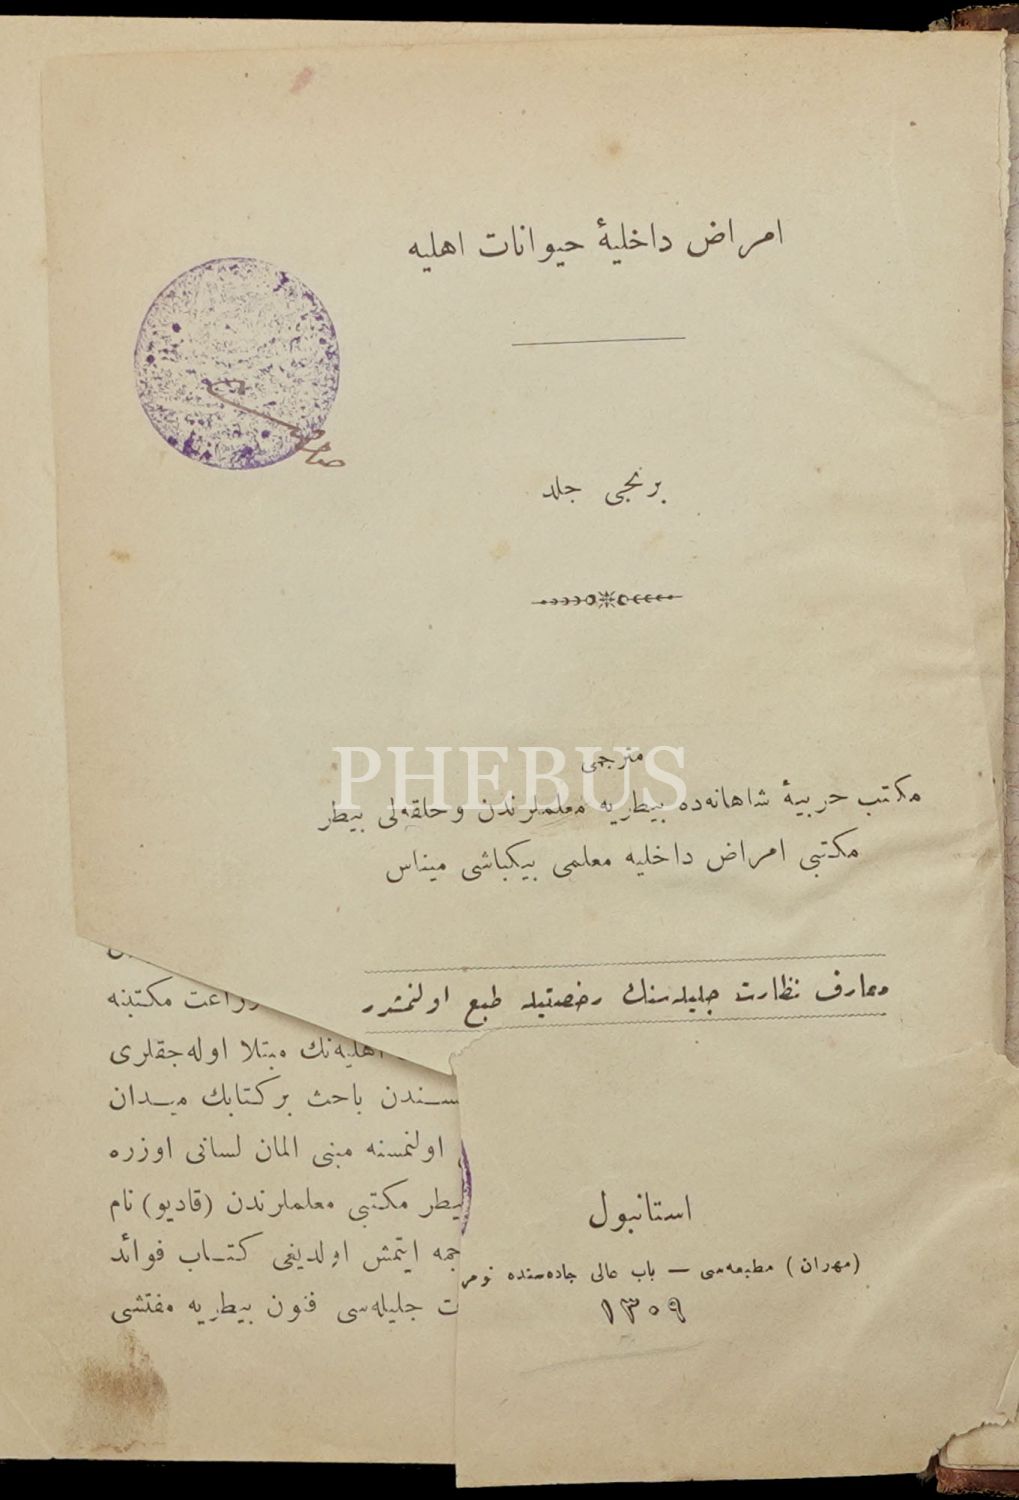 امراض داخلیهٔ حیوانات اهلیه
برنجی جلد
مترجمی
مكتب حربیهٔ شاهانه‌ده بیطریه معلملرندن وحلقه‌لی بیطر
مكتبی امراض داخلیه معلمی بیكباشی میناس
معارف نظارت جلیله‌سنك رخصتیله طبع اولنمشدر
استانبول
(مهران) مطبعه‌سی — باب عالی جاده‌سنده نومر
١٣٠٩
PHEBUS
زراعت مكتبنه
اهلیه‌نك مبتلا اوله‌جقلری
سندن باحث بر كتابك میدان
اولنمسنه مبنی المان لسانی اوزره
بیطر مكتبی معلملرندن (قادیو) نام
جمه ایتمش اولدیغی كتاب فوائد
ت جلیله‌سی فنون بیطریه مفتشی